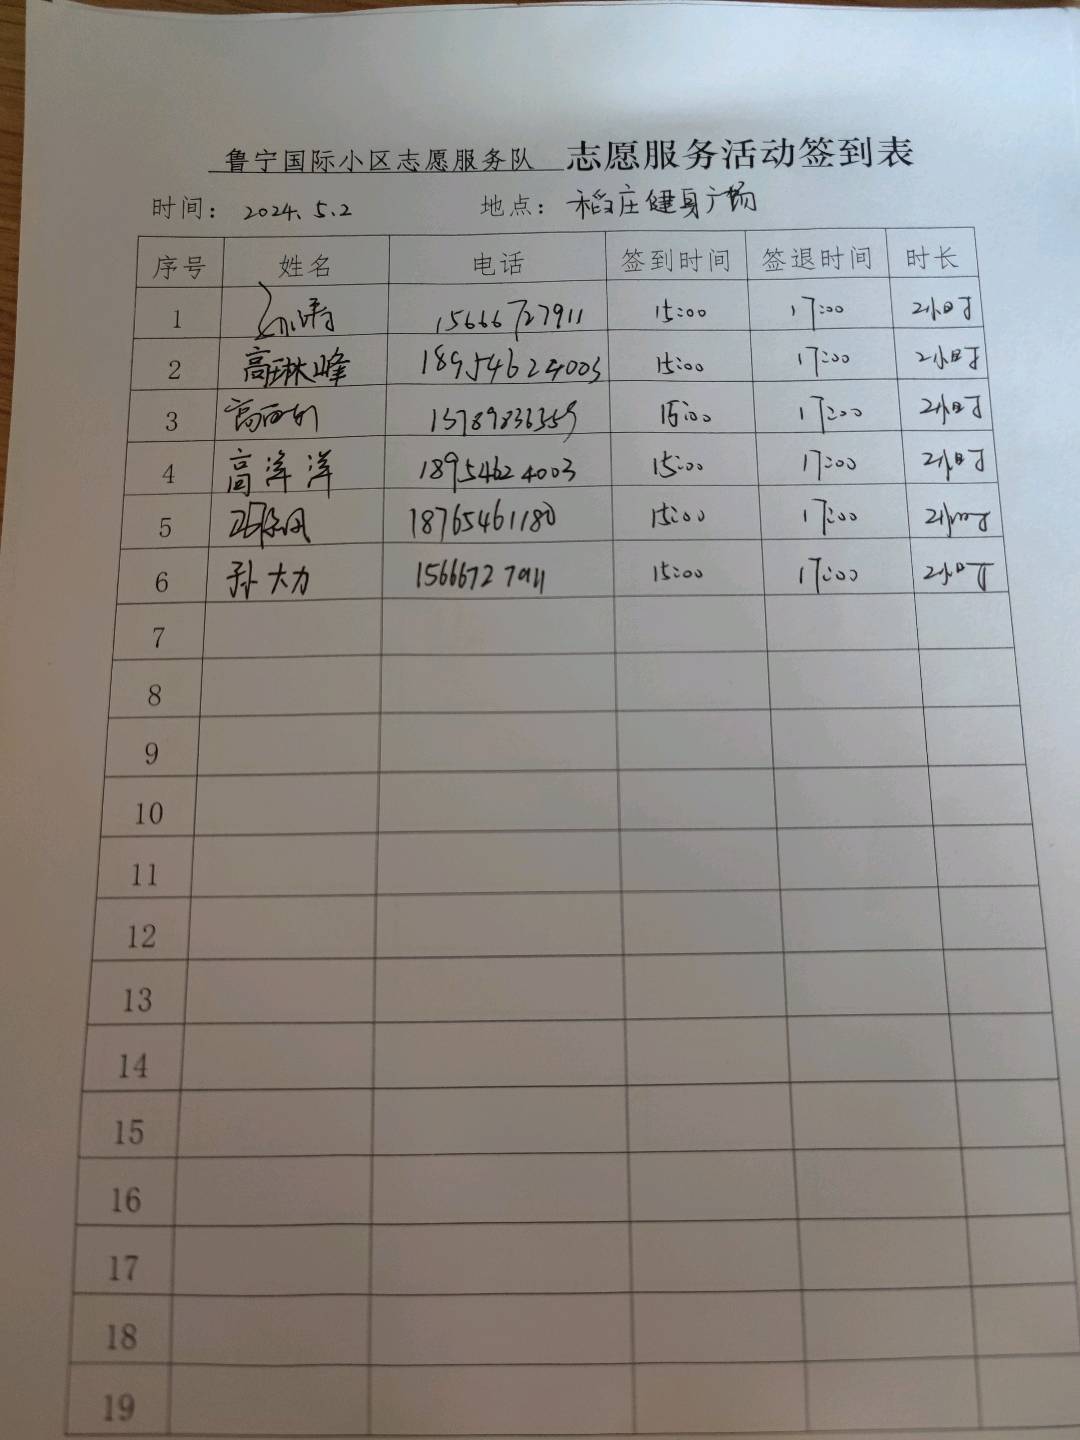 鲁宁国际小区志愿服务队 志愿服务活动签到表
时间: 2024.5.2 地点: 稻庄健身广场
序号 姓名 电话 签到时间 签退时间 时长
1 孙涛 15666727911 15:00 17:00 2小时
2 高琳峰 18954624003 15:00 17:00 2小时
3 15:00 17:00 2小时
4 高洋洋 18954624003 15:00 17:00 2小时
5 18765461180 15:00 17:00 2小时
6 孙大力 15666727911 15:00 17:00 2小时
7
8
9
10
11
12
13
14
15
16
17
18
19